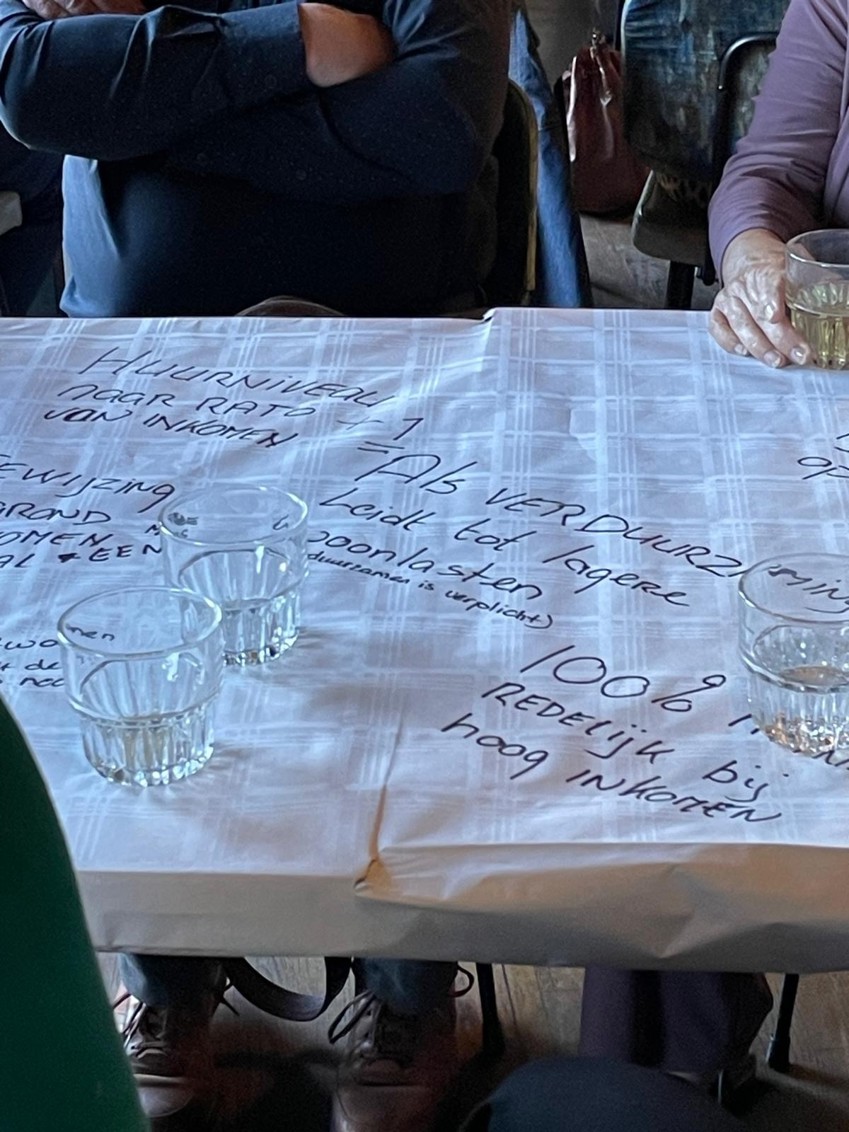 HUURNIVEAU
naar RATO + 1
VAN INKOMEN
=
Als VERDUURZ
Leidt tot lagere
woonlasten
duurzamen is verplicht)
EWIJZING
GROND
OMEN
AL + EEN
de
100%
REDELIJK bij
hoog INKOMEN
op